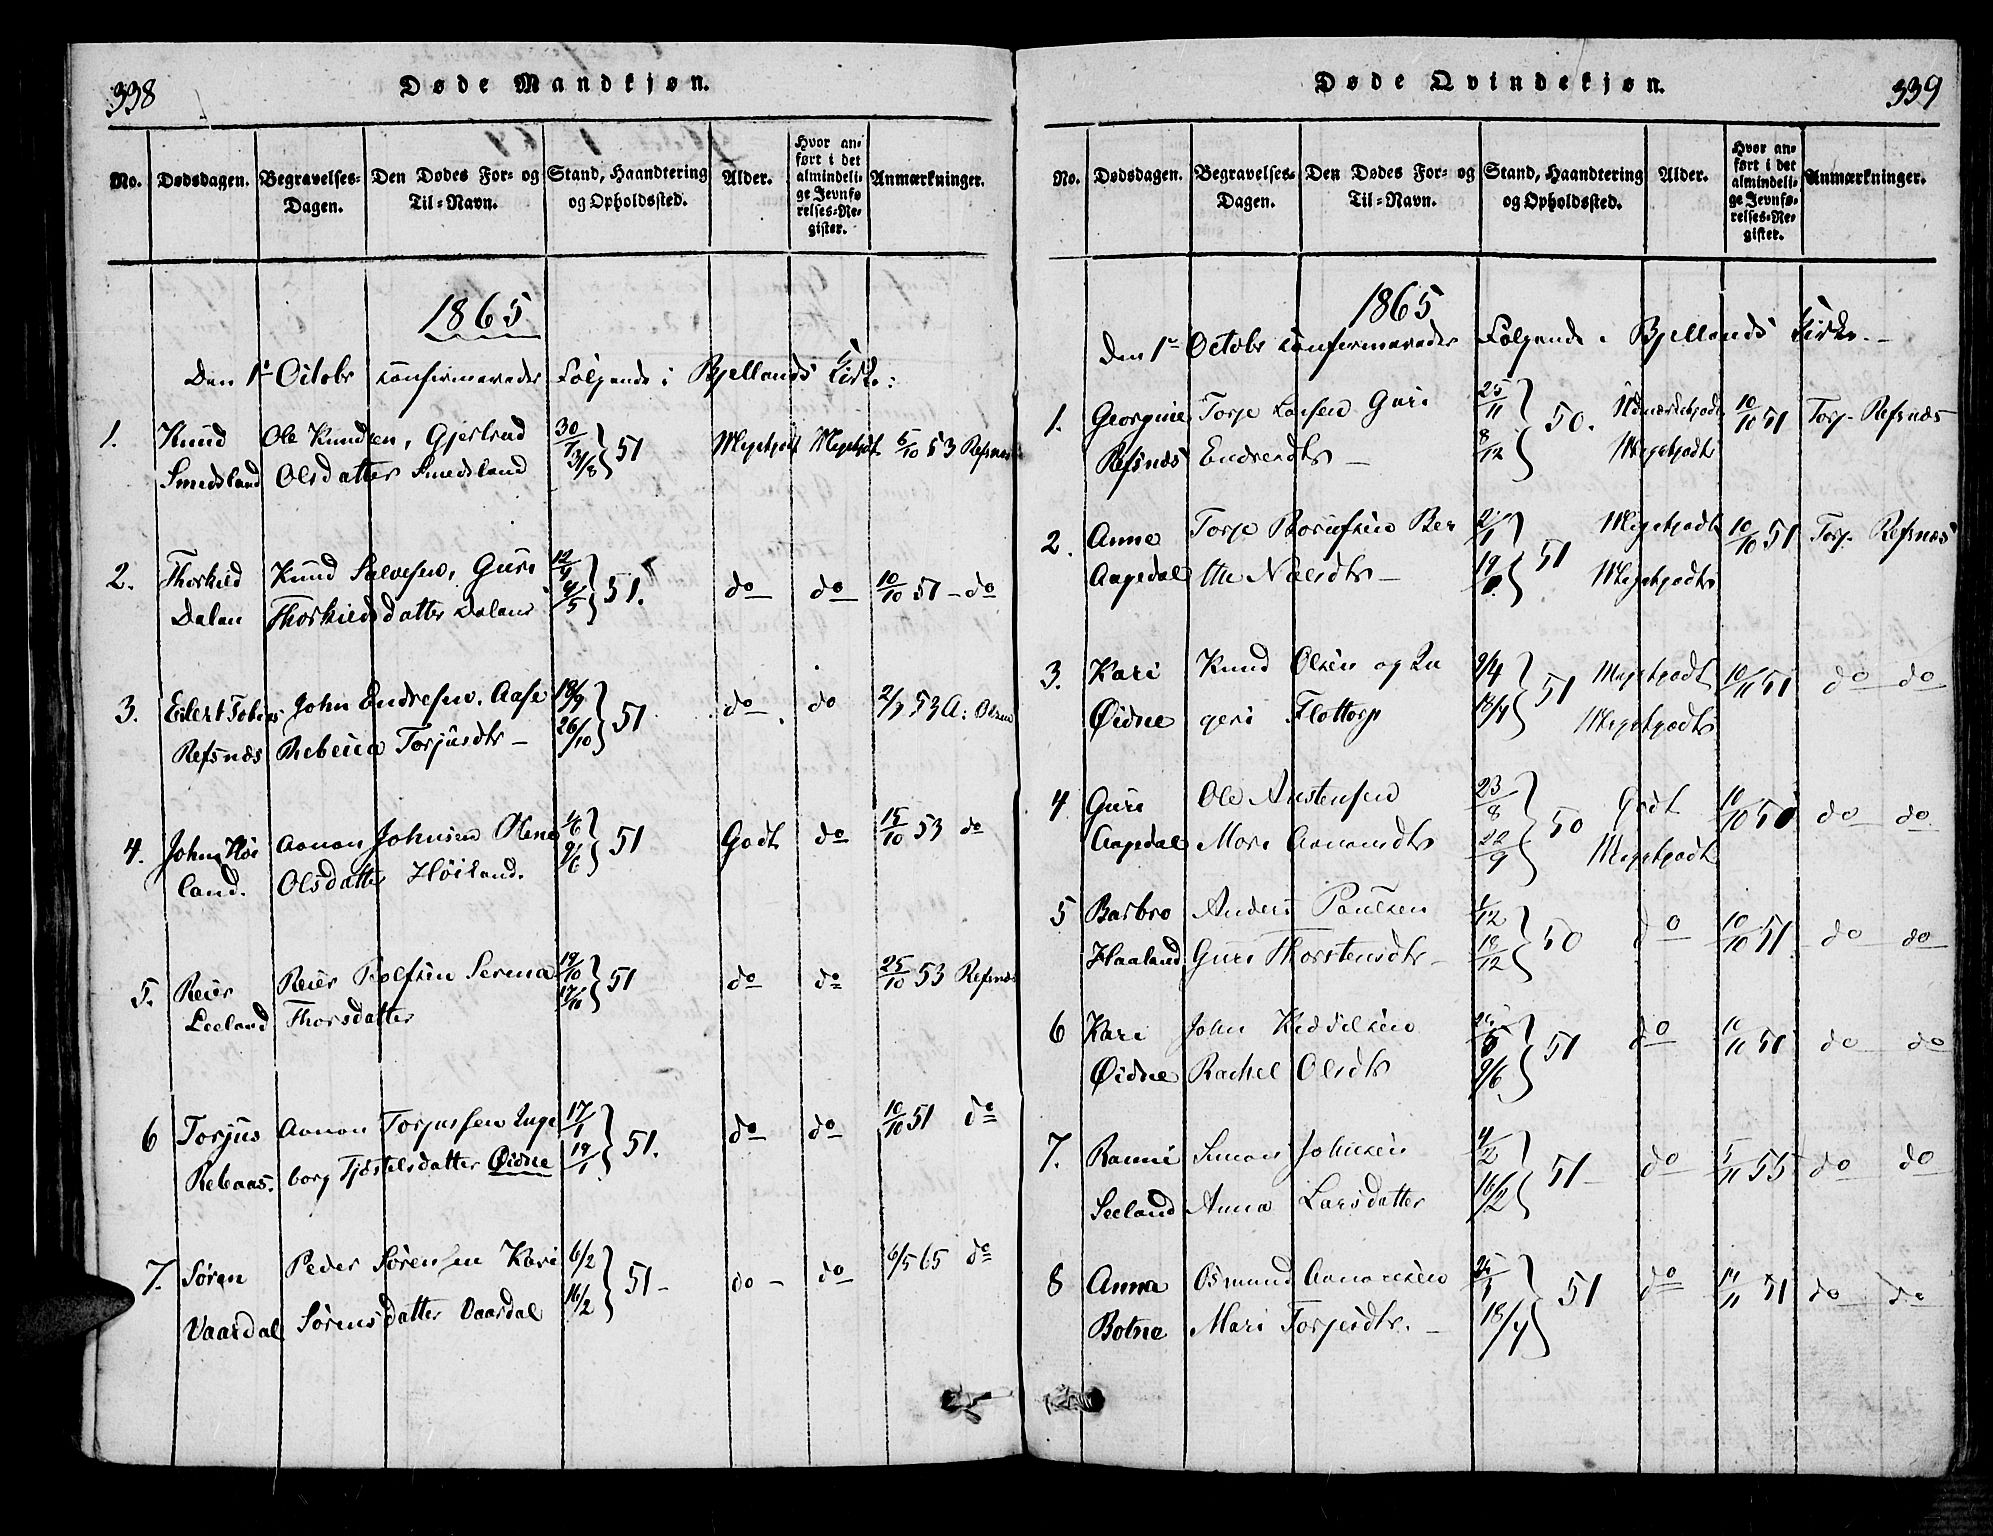 338
Døde Mandkjøn.
No. Dødsdagen. Begravelses-Dagen. Den Dødes For- og Til-Navn. Stand, Haandtering og Opholdssted. Alder. Hvor anført i det almindelige Jevnførelses-Register. Anmærkninger.
1865
Den 1ste Octobr confirmeredes Følgende i Bjellands Kirke:
1. Knud Ole Knudsen, Gjertrud 30/7 51 Megetgodt Megetgodt 5/10 53 Refsnæs
Smedsland Olsdatter Smedsland 3/8
2. Thorkied Knud Salvesen, Guri 12/4 51. do do 10/10 51 - do
Dalen Thorkieldsdatter Dalene 4/5
3. Eilert Tobias John Endresen. Aase 18/9 51 do. do 2/7 53 A: Olsen
Refsnæs Rebecca Torjusdtr - 26/10
4. John Høi Aanon Johnsen Olene 1/6 51 Godt do 15/10 53 do
land. Olsdatter Høiland. 9/6
5. Reier Reier Rolfsen Serina 19/10 51 do do 25/10 53 Refsnæs
Leeland Thorsdatter 17/11
6 Torjus Aanon Torjussen Inge 17/1 51. do do 10/10 51 do
Rebaas. borg Tjøstelsdatter Øidne 19/1
7. Søren Peder Sørensen Kari 6/2 51 - do - do 6/5 65 do
Vaardal Sørensdatter Vaardal 16/2
339
Døde Qvindekjøn.
No. Dødsdagen. Begravelses-Dagen. Den Dødes For- og Til-Navn. Stand, Haandtering og Opholdssted. Alder. Hvor anført i det almindelige Jevnførelses-Register. Anmærkninger.
1865
Den 1ste Octobr confirmeredes Følgende i Bjellands Kirke. -
1. Georgine Torje Larsen Guri 25/11 50. Udmærketgodt 10/10 51 Torj. Refsnæs
Refsnæs Endresdtr - 8/12 Megetgodt
2. Anne Torje Ber Megetgodt 10/10 51 Torj. Refsnæs
Aagedal the Nilsdtr - 51 Megetgodt
3. Kari Knud Olsen og In 9/4 51 Megetgodt 10/11 51 do do
Øidne geri Flottorp 18/4 Megetgodt
4 Guri Ole Austensen 23/8 50 Godt do do
Aagedal Mari Aanondtr 22/9 Megetgodt
5 Barbro Anders Paulsen 1/12 50 do 10/10 51 do do
Haaland Guri Thorstensdtr - 18/12
6 Kari John Keddelsen 51 do 51 do do
Øidne Rachel Olsdtr 9/6
7. Ranni Simon Johnsen 4/2 51 - do 5/11 55 do do
Leeland Anna Larsdatter 16/2
8 Anna Osmund Aanonsen 51 do 51 do do
Botne Mari Torjusdtr. - 18/4